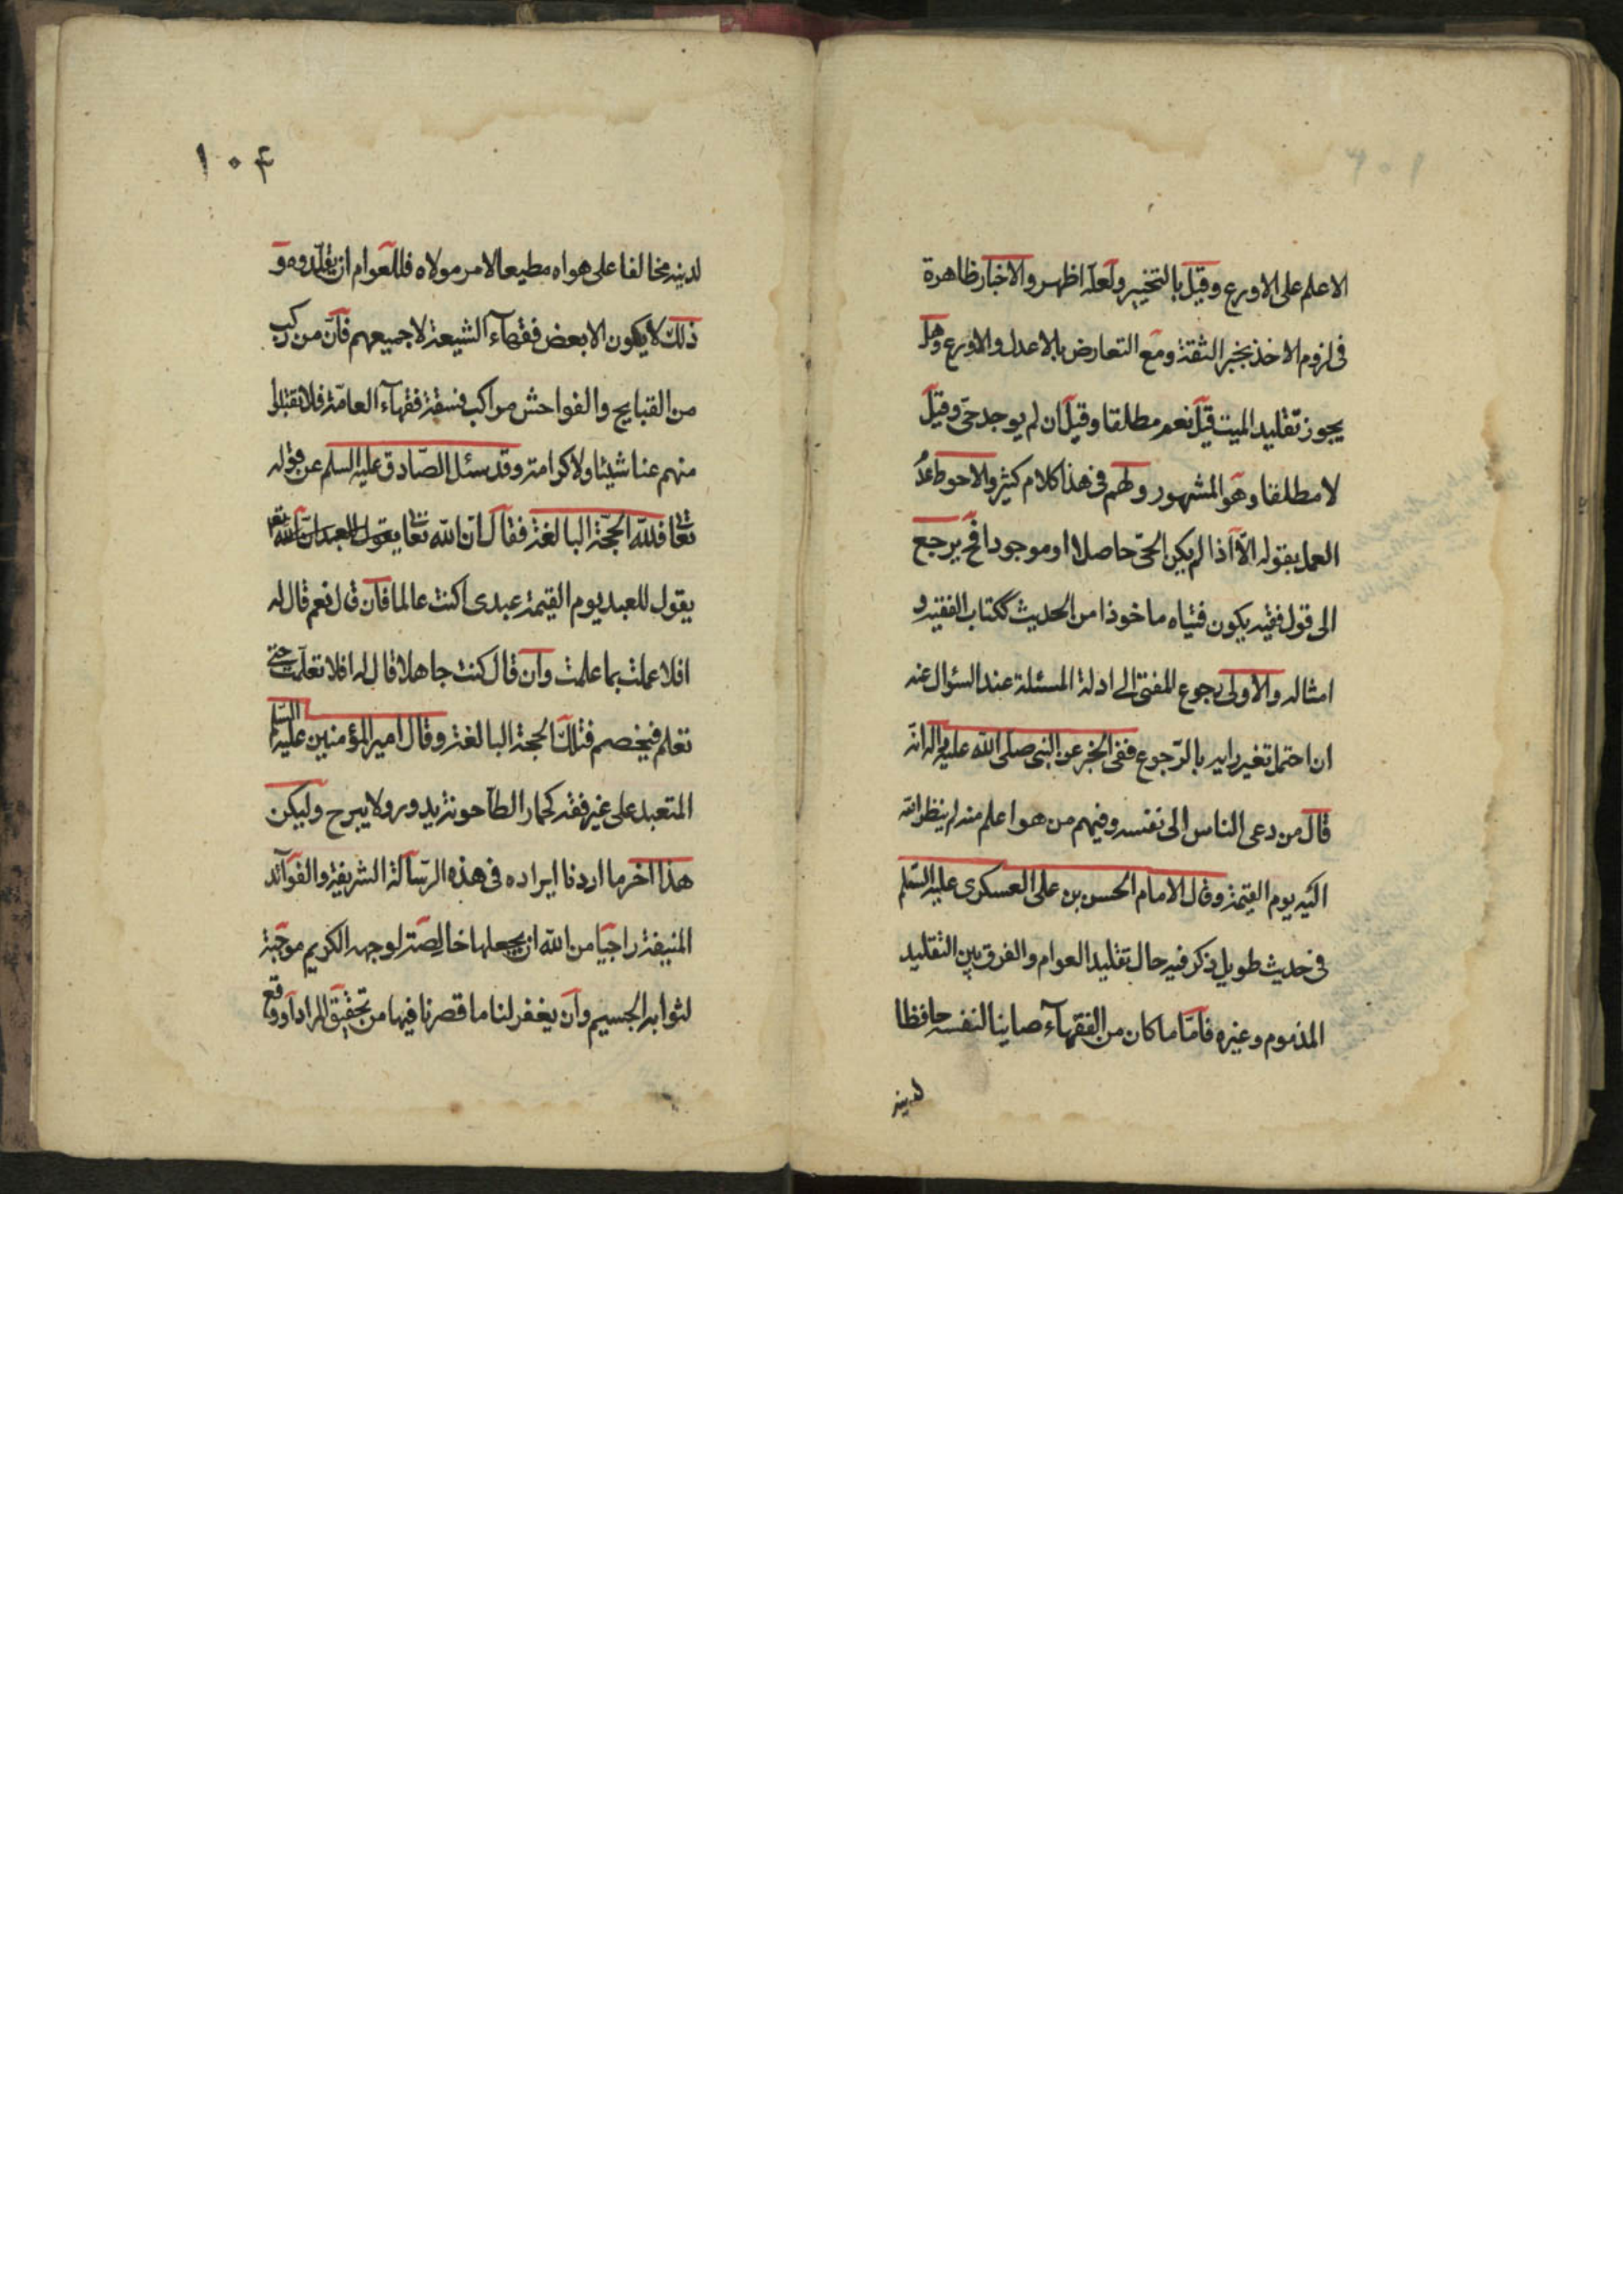 الاعلم على الاورع وقيل بالتخيير ولعله اظهر والاخبار ظاهرة
فى لزوم الاخذ بخبر الثقة ومع التعارض بالاعدل والاورع وهل
يجوز تقليد الميت قيل نعم مطلقا وقيل ان لم يوجد حى وقيل
لا مطلقا وهو المشهور ولهم فى هذا كلام كثير والاحوط عدم
العمل بقوله الا اذا لم يكن الحى حاصلا او موجودا فح يرجع
الى قول فقيه يكون فتياه ماخوذا من الحديث ككتاب الفقيه و
امثاله والاولى رجوع المفتى الى ادلة المسئلة عند السؤال عنه
ان احتمل تغير رايه بالرجوع ففى الخبر عن النبى صلى الله عليه واله انه
قال من دعى الناس الى نفسه وفيهم من هو اعلم منه لم ينظر الله
اليه يوم القيمة وقال الامام الحسن بن على العسكرى عليه السلم
فى حديث طويل ذكر فيه حال تقليد العوام والفرق بين التقليد
المذموم وغيره فامّا ما كان من الفقهآء صاينا لنفسه حافظا
لدينه
١٠۴
لدينه مخالفا على هواه مطيعا لامر مولاه فللعوام ان يقلدوه و
ذلك لا يكون الا بعض فقهآء الشيعة لا جميعهم فان من ركب
من القبايح والفواحش مراكب فسقة فقهآء العامّة فلا تقبلوا
منهم عنا شيئا ولا كرامة وقد سئل الصّادق عليه السلم عن قوله
تعالى فلله الحجّة البالغة فقال ان الله تعالى يقول للعبد ان الله تعالى
يقول للعبد يوم القيمة عبدى اكنت عالما فان قال نعم قال له
افلا عملت بما علمت وان قال كنت جاهلا قال له افلا تعلمت حتى
تعلم فيخصم فتلك الحجة البالغة وقال امير المؤمنين عليه السلم
المتعبد على غير فقه كحمار الطاحونة يدور ولا يبرح وليكن
هذا اخر ما اردنا ايراده فى هذه الرّسالة الشريفة والفوآئد
المنيفة راجيا من الله ان يجعلها خالصة لوجهه الكريم موجبة
لثوابه الجسيم وان يغفر لنا ما قصرنا فيها من تحقيق المراد او وقع